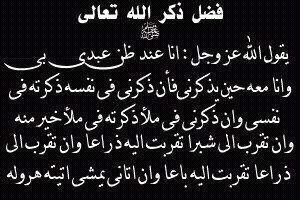 فضل ذكر الله تعالى
ﷺ
يقول الله عز وجل : انا عند ظن عبدى بى
وانا معه حين يذكرنى فأن ذكرنى فى نفسه ذكرته فى
نفسى وان ذكرنى فى ملأ ذكرته فى ملأ خير منه
وان تقرب الى شبرا تقربت اليه ذراعا وان تقرب الى
ذراعا تقربت اليه باعا وان اتانى يمشى اتيته هروله